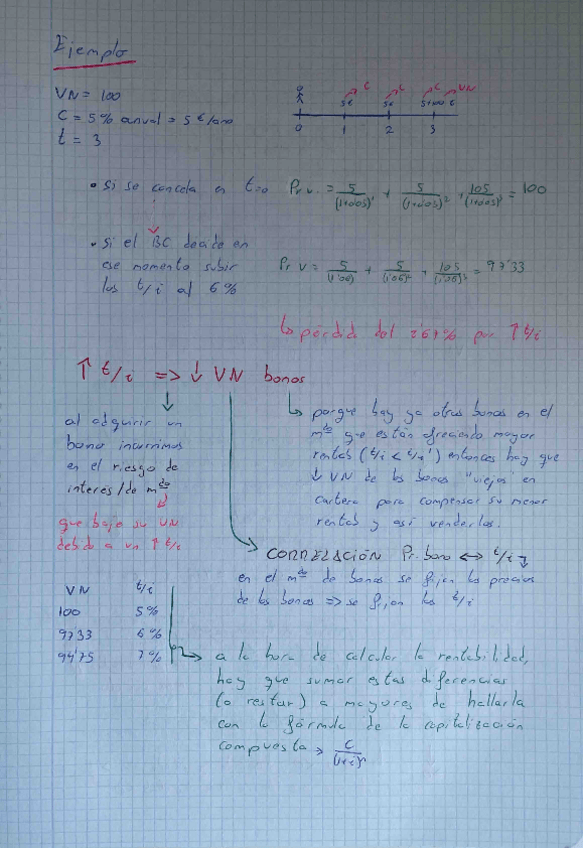 Ejemplo
VN = 100
C = 5% anual = 5 €/año
t = 3
C C C VN
5€ 5€ 5+100 €
0 1 2 3
• Si se cancela en t=0 Pr v. = 5/(1+0'05)¹ + 5/(1+0'05)² + 105/(1+0'05)³ = 100
• Si el BC decide en
ese momento subir
los t/i al 6%
Pr V = 5/(1'06) + 5/(1'06)² + 105/(1'06)³ = 97'33
↳ pérdid del 2'67% por ↑ t/i
↑ t/i => ↓ VN bonos
al adquirir un
bono incurrimos
en el riesgo de
interés/de mdo
que baje su VN
debido a un ↑ t/i
↳ porque hay ya otros bonos en el
mdo que están ofreciendo mayor
rentab (t/i < t/i') entonces hay que
↓ VN de los bonos "viejos en
cartera para compensar su menor
rentab y así venderlos.
CORRELACIÓN Pr. bono ↔ t/i
en el mdo de bonos se fijan los precios
de los bonos => se fijan los t/i
VN t/i
100 5%
97'33 6%
94'75 7%
a la hora de calcular la rentabilidad,
hay que sumar estas diferencias
(o restar) a mayores de hallarla
con la fórmula de la capitalización
compuesta → C/(1+i)ⁿ